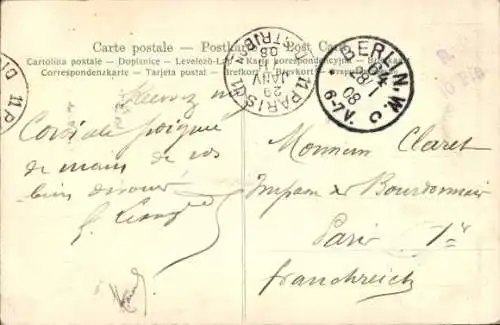 Carte postale – Postkarte – Post Card
Cartolina postale – Dopisnice – Levelező-Lap – Karta korespondencyjna – Briefkaart
Correspondenzkarte – Tarjeta postal – Brefkort – Brevkort
BERLIN. N.W.
28/1
08
6-7V.
C
PARIS 11
29
JANV
08
DISTRIBON
11 P
DI
Cordiale poignée
de main de vos
bien dévoué
Monsieur Claret
Impasse de Bourdonnais
Paris 1r
Franckreich